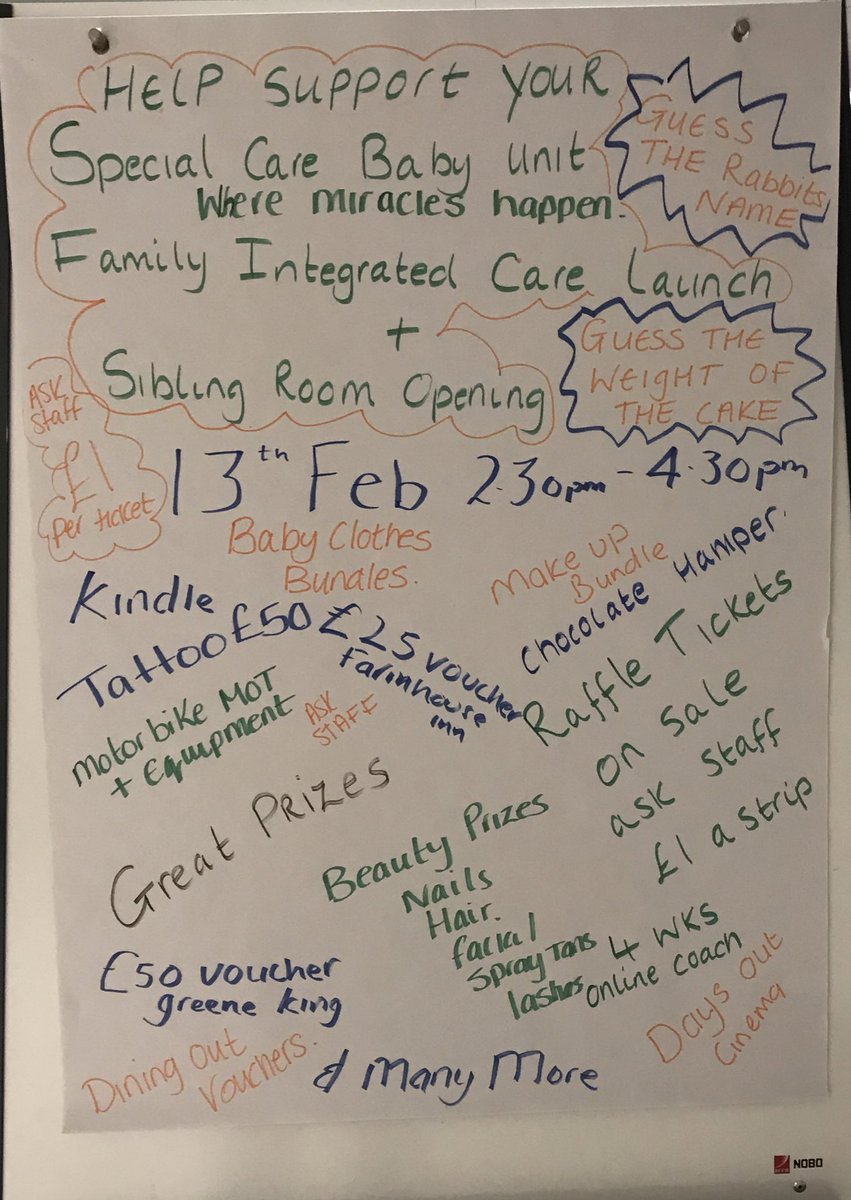 HELP SUPPORT YOUR
Special Care Baby Unit
Where miracles happen.
Family Integrated Care Launch
+
Sibling Room Opening
GUESS
THE Rabbits
NAME
GUESS THE
WEIGHT OF
THE CAKE
ASK
Staff
£1
per ticket
13th Feb 2.30pm - 4.30pm
Baby Clothes
Bundles.
Make up
Bundle
Chocolate Hamper.
Kindle
Tattoo £50
£25 voucher
Farmhouse
inn
Motorbike MOT
+ Equipment
ASK
STAFF
Raffle Tickets
on sale
ask staff
£1 a strip
Great Prizes
Beauty Prizes
Nails
Hair.
facial
Spray Tans
lashes
4 WKS
online coach
£50 voucher
greene king
Days out
Cinema
Dining Out
Vouchers.
& Many More
NOBO